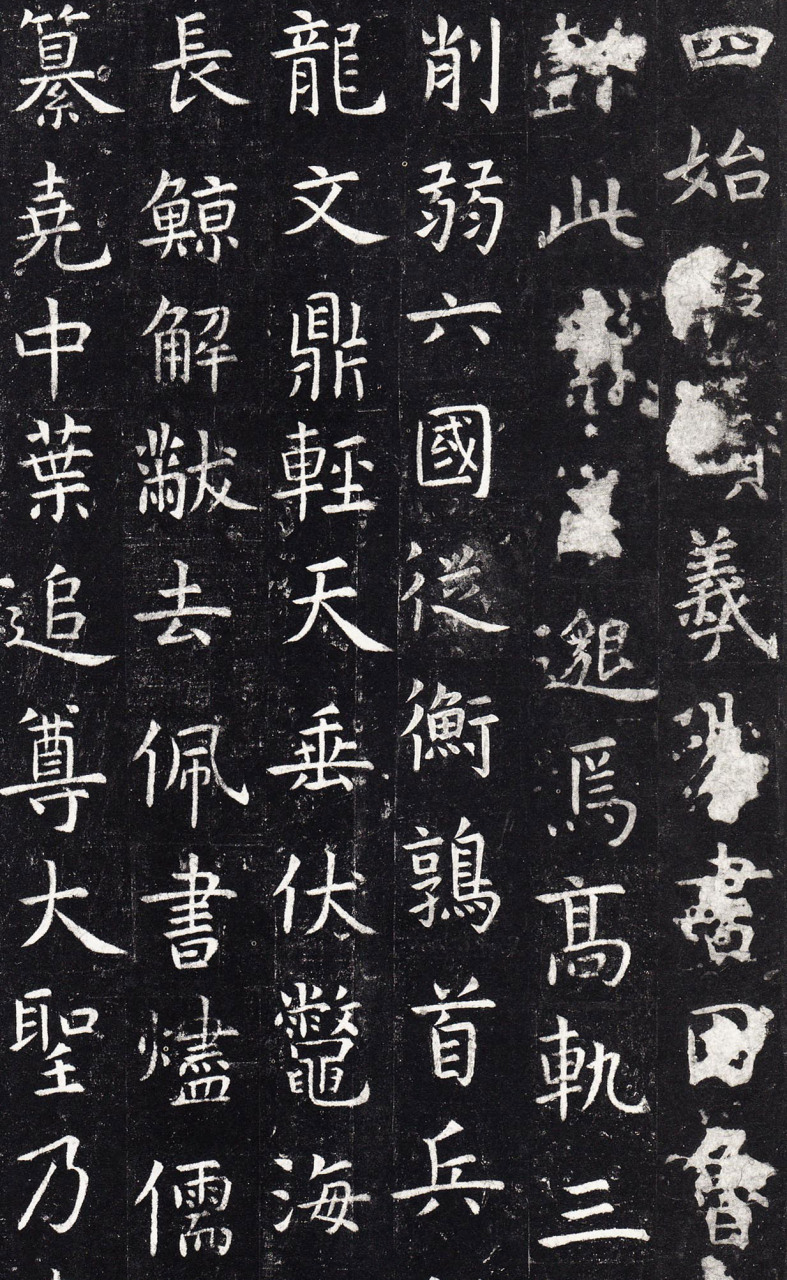 四始羲書魯
此邈焉高軌三
削弱六國從衡鶉首兵
龍文鼎輕天垂伏鼈海
長鯨解黻去佩書燼儒
纂堯中葉追尊大聖乃